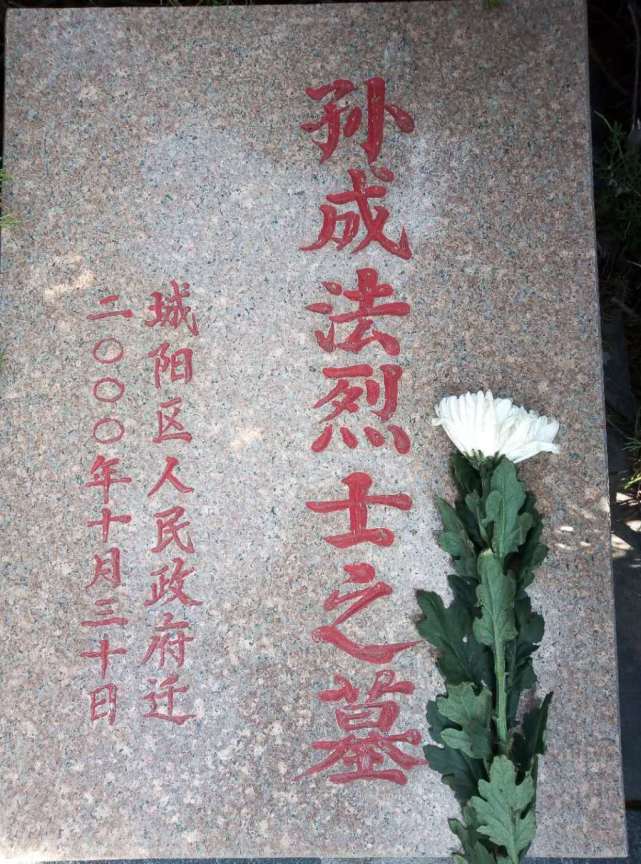 孙成法烈士之墓
城阳区人民政府迁
二〇〇〇年十月三十日